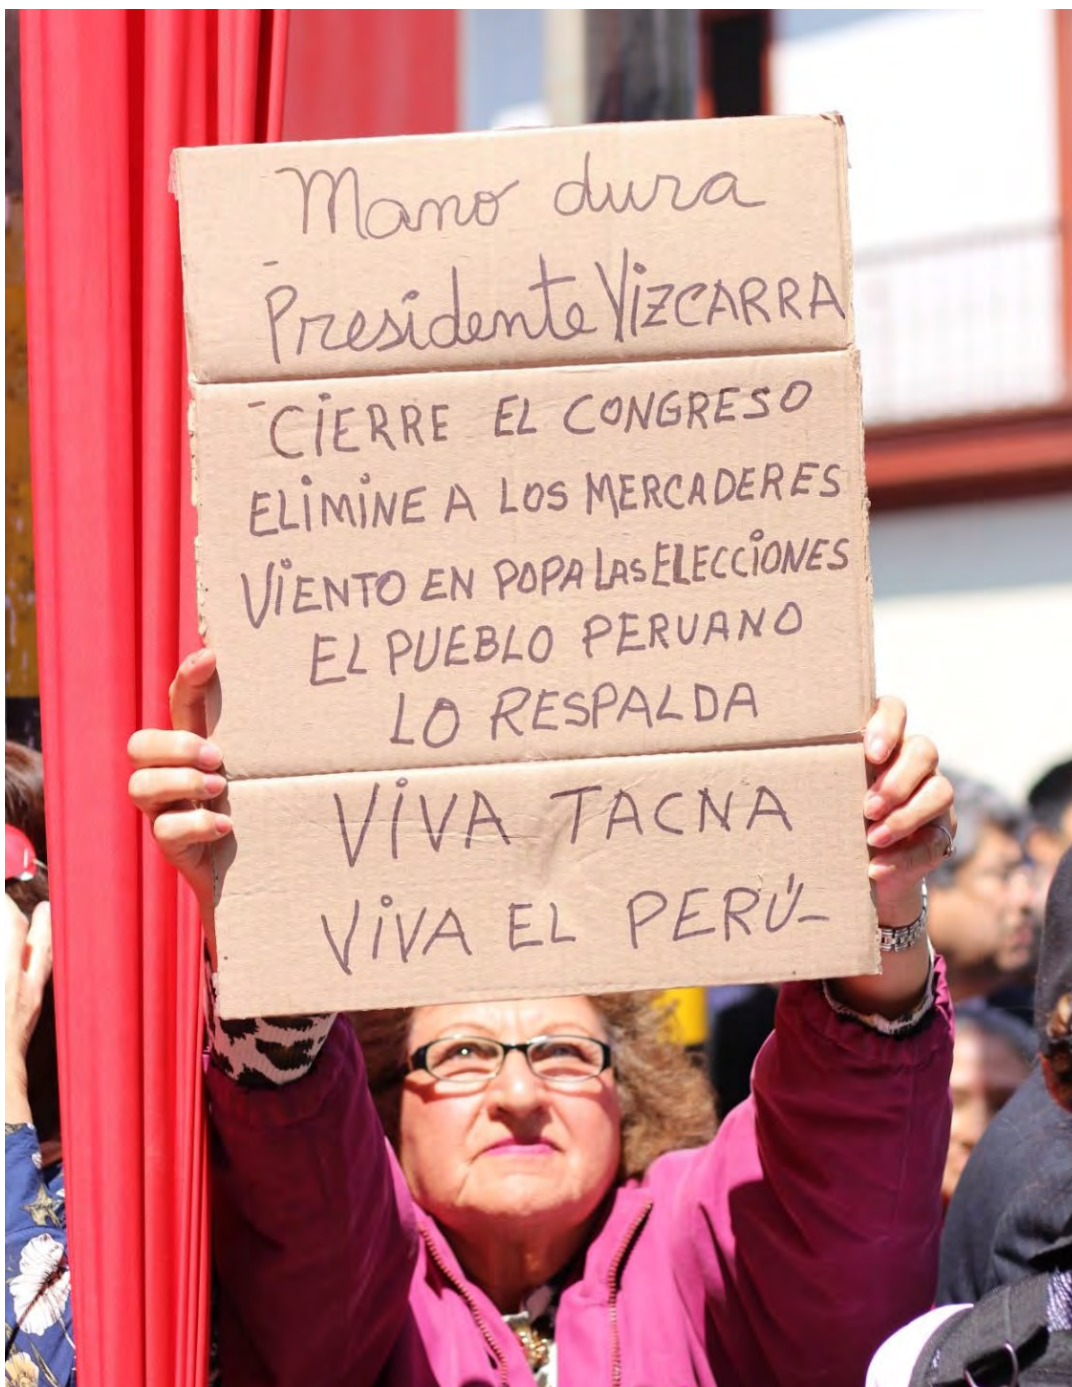 Mano dura
- Presidente VIZCARRA
- CIERRE EL CONGRESO
ELIMINE A LOS MERCADERES
VIENTO EN POPA LAS ELECCIONES
EL PUEBLO PERUANO
LO RESPALDA
VIVA TACNA
VIVA EL PERÚ-